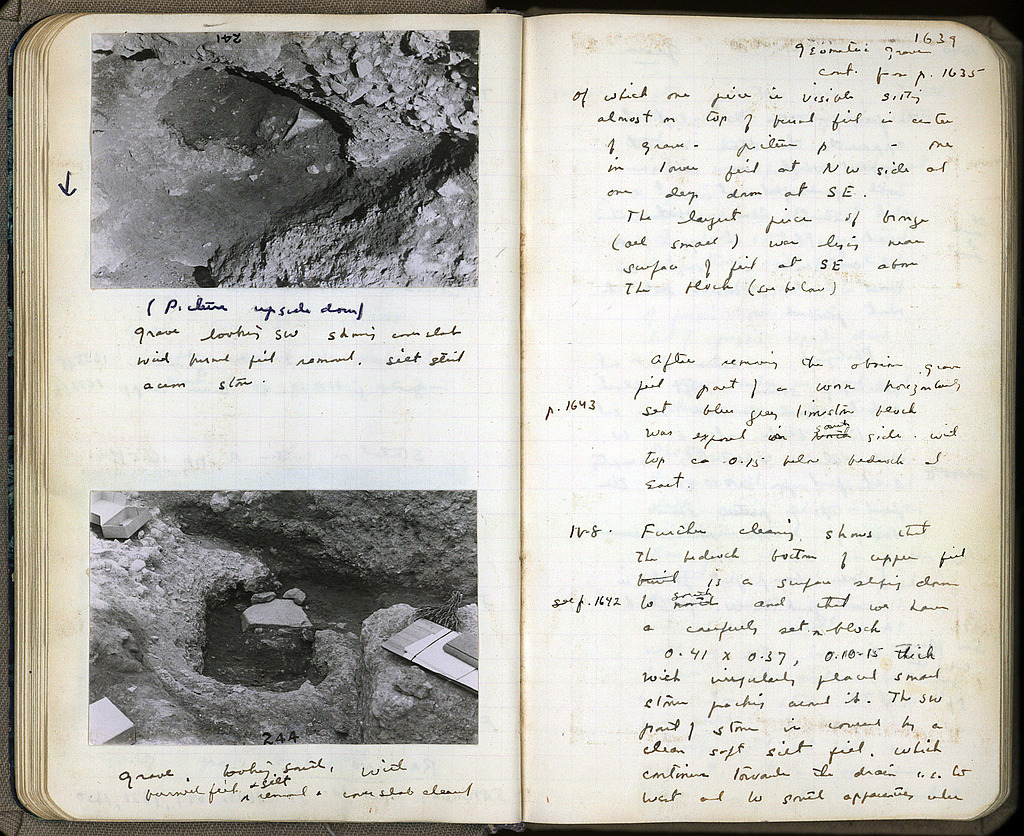 241
(Picture upside down)
grave looking SW showing cover slab
with burnt fill removed. silt still
across stone.
244
grave, looking south, with
burned fill & silt removed & cover slab cleaned
1639
geometric grave
cont. from p. 1635
of which one piece is visible sitting
almost on top of burnt fill in center
of grave - picture p - one
in lower fill at NW side at
one deep down at SE.
The largest piece of bronze
(all small) was lying near
surface of fill at SE above
the block (see below)
After removing the obvious grave
fill part of a worn horizontally
p. 1643
set blue grey limestone block
was exposed on south side. with
top ca 0.15 below bedrock at
east.
IV-8. Further cleaning shows that
the bedrock bottom of upper fill
is a surface sloping down
see p. 1642
to south and that we have
a carefully set in block
0.41 x 0.37, 0.10-15 thick
with irregularly placed small
stone packing around it. The SW
part of stone is covered by a
clean soft silt fill, which
continues towards the drain i.e. to
west and to south apparently under